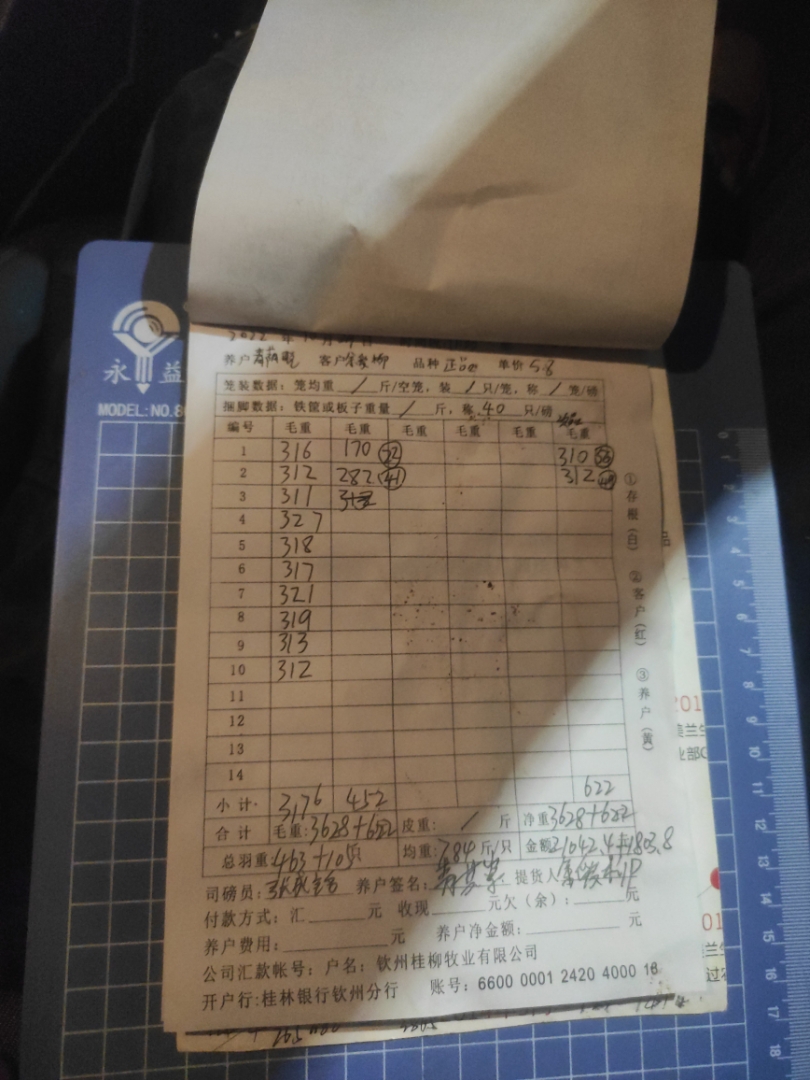 永益
MODEL:NO.8
2022 年 10月29日
养户 客户 品种 正品 单价 5.8
笼装数据：笼均重 / 斤/空笼，装 / 只/笼，称 / 笼/磅
捆脚数据：铁筐或板子重量 / 斤，称 40 只/磅
编号 毛重 毛重 毛重 毛重 毛重 毛重
1 316 170 32 310
2 312 282 41 312
3 311
4 327
5 318
6 317
7 321
8 319
9 313
10 312
11
12
13
14
小计 3176 452 622
合计 毛重：3628+622 皮重： / 斤 净重3628+622
总羽重：463+105只 均重：7.84斤/只 金额21042.4+1803.8
司磅员： 养户签名： 提货人
付款方式：汇 元 收现 元欠（余）： 元
养户费用： 元 养户净金额： 元
公司汇款帐号：户名：钦州桂柳牧业有限公司
开户行：桂林银行钦州分行 账号：6600 0001 2420 4000 16
①存根（白） ②客户（红） ③养户（黄）